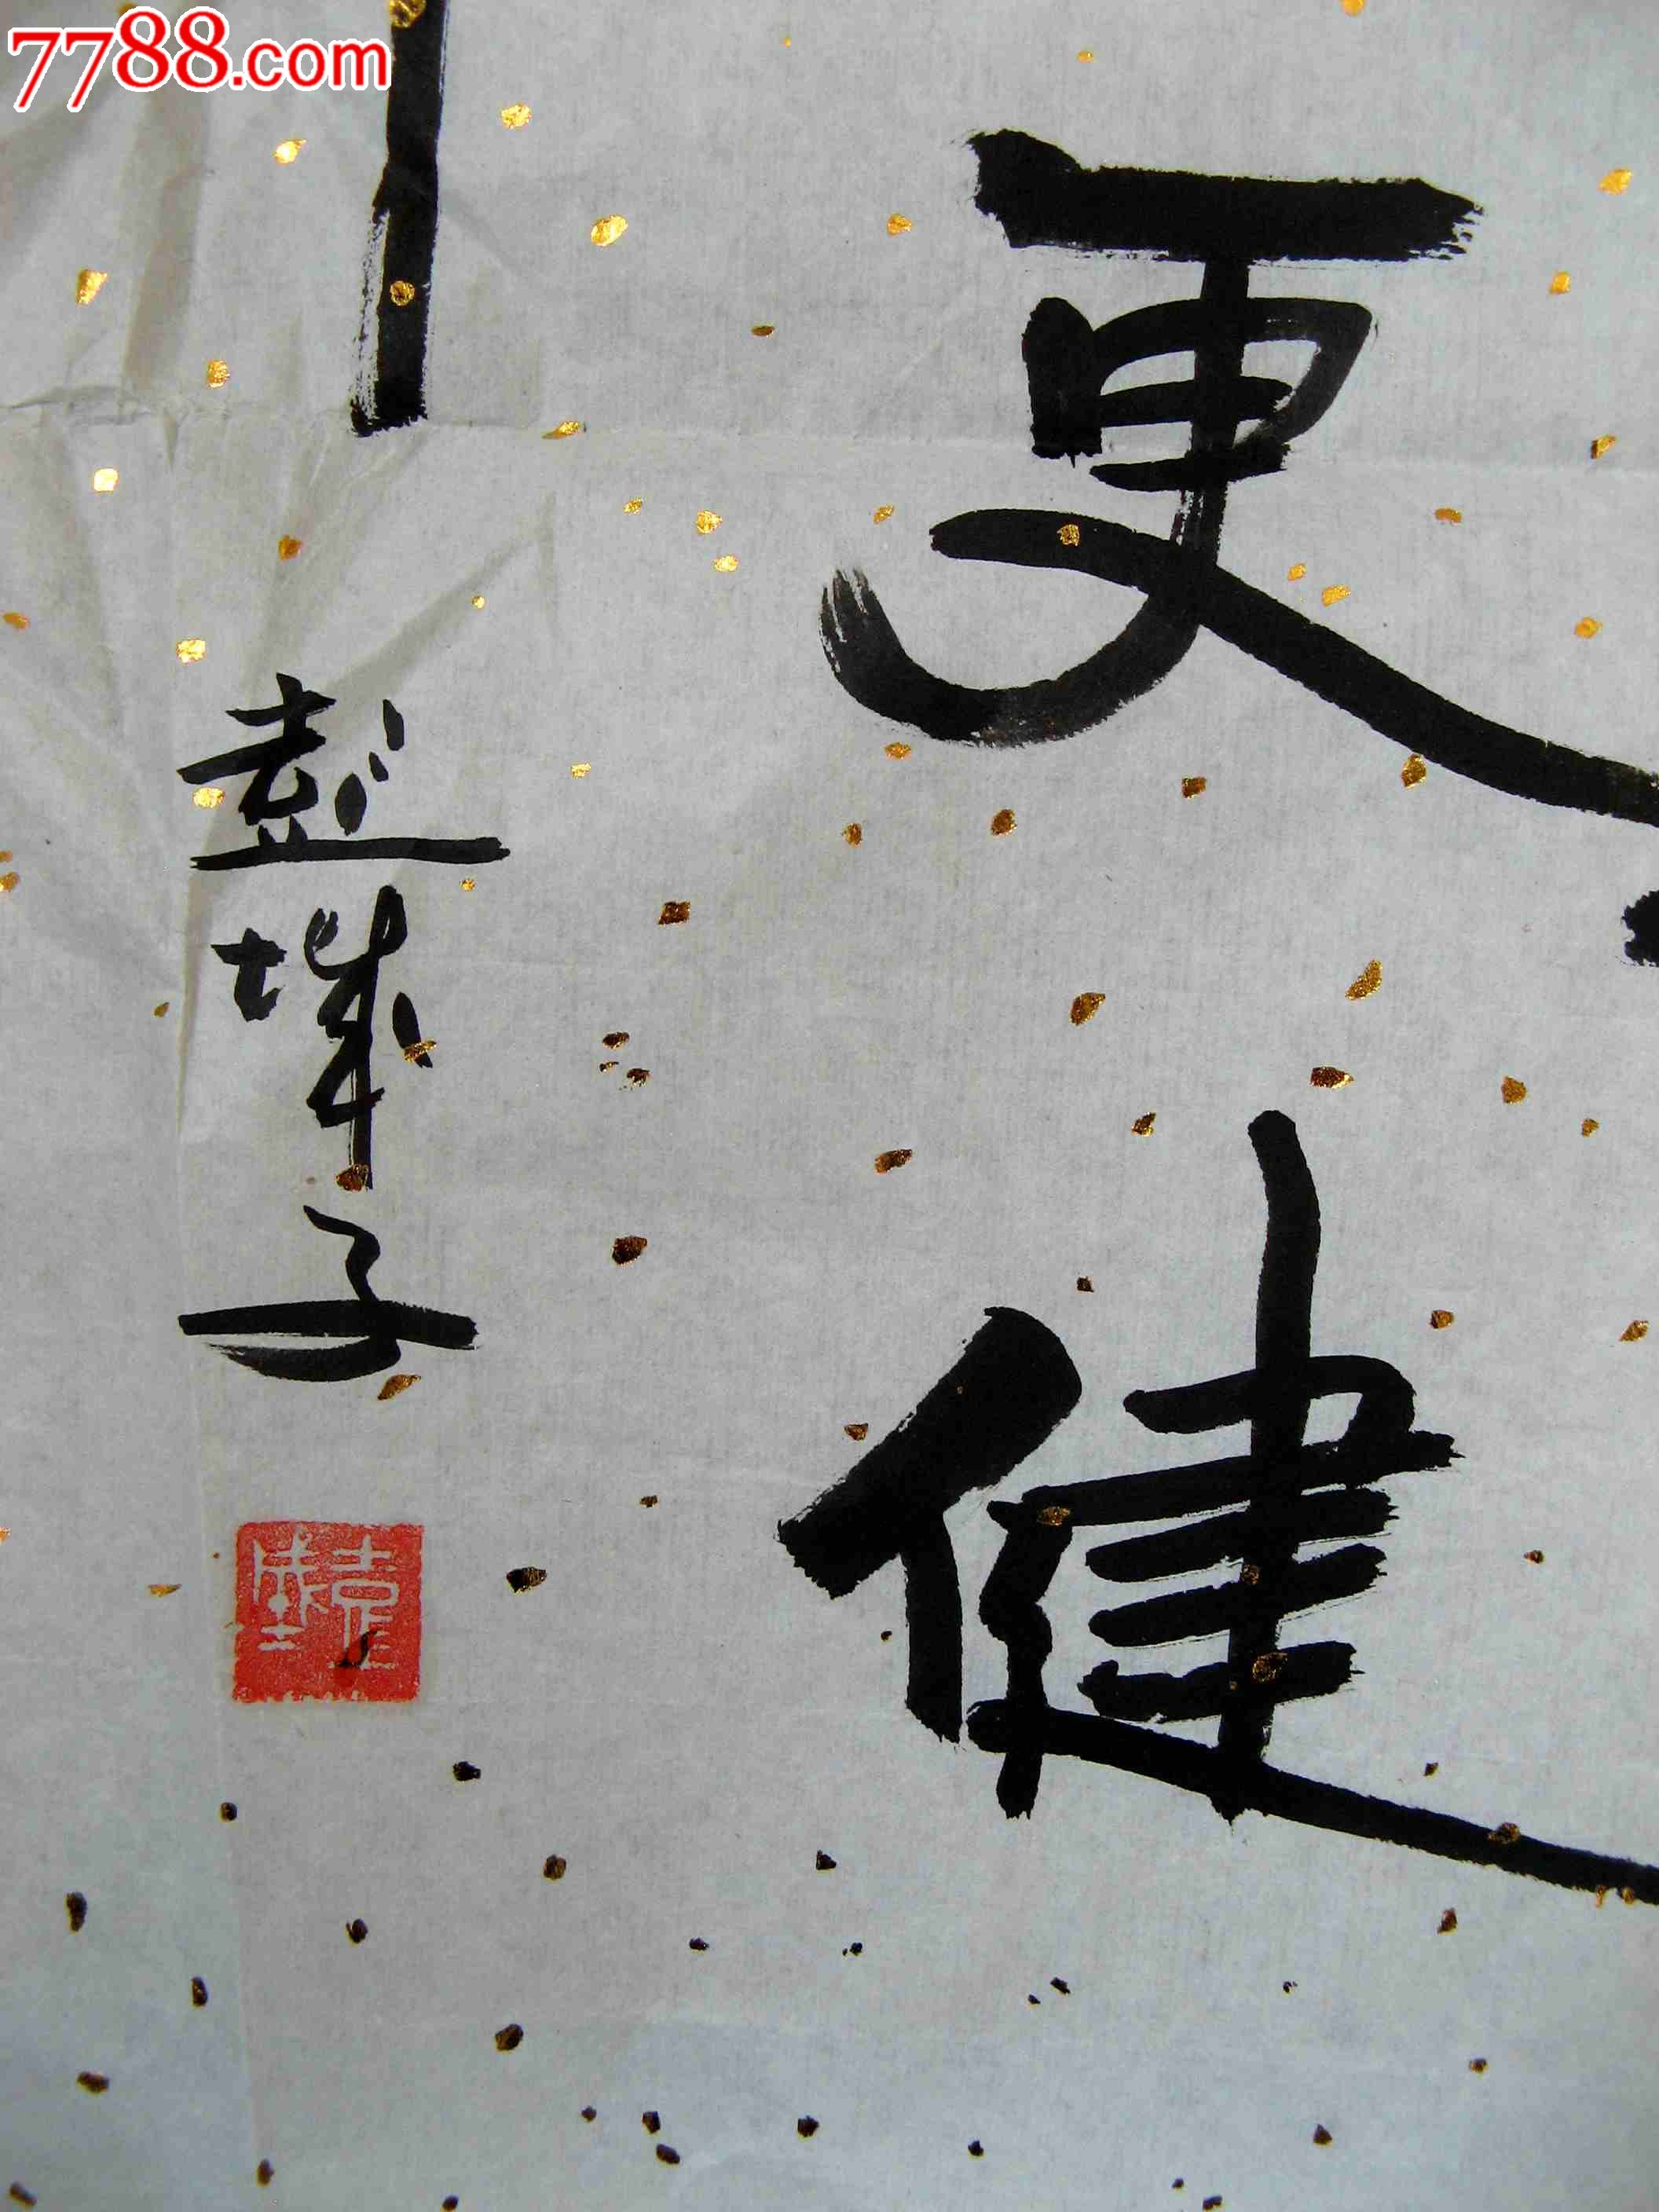 7788.com
更健
彭城子